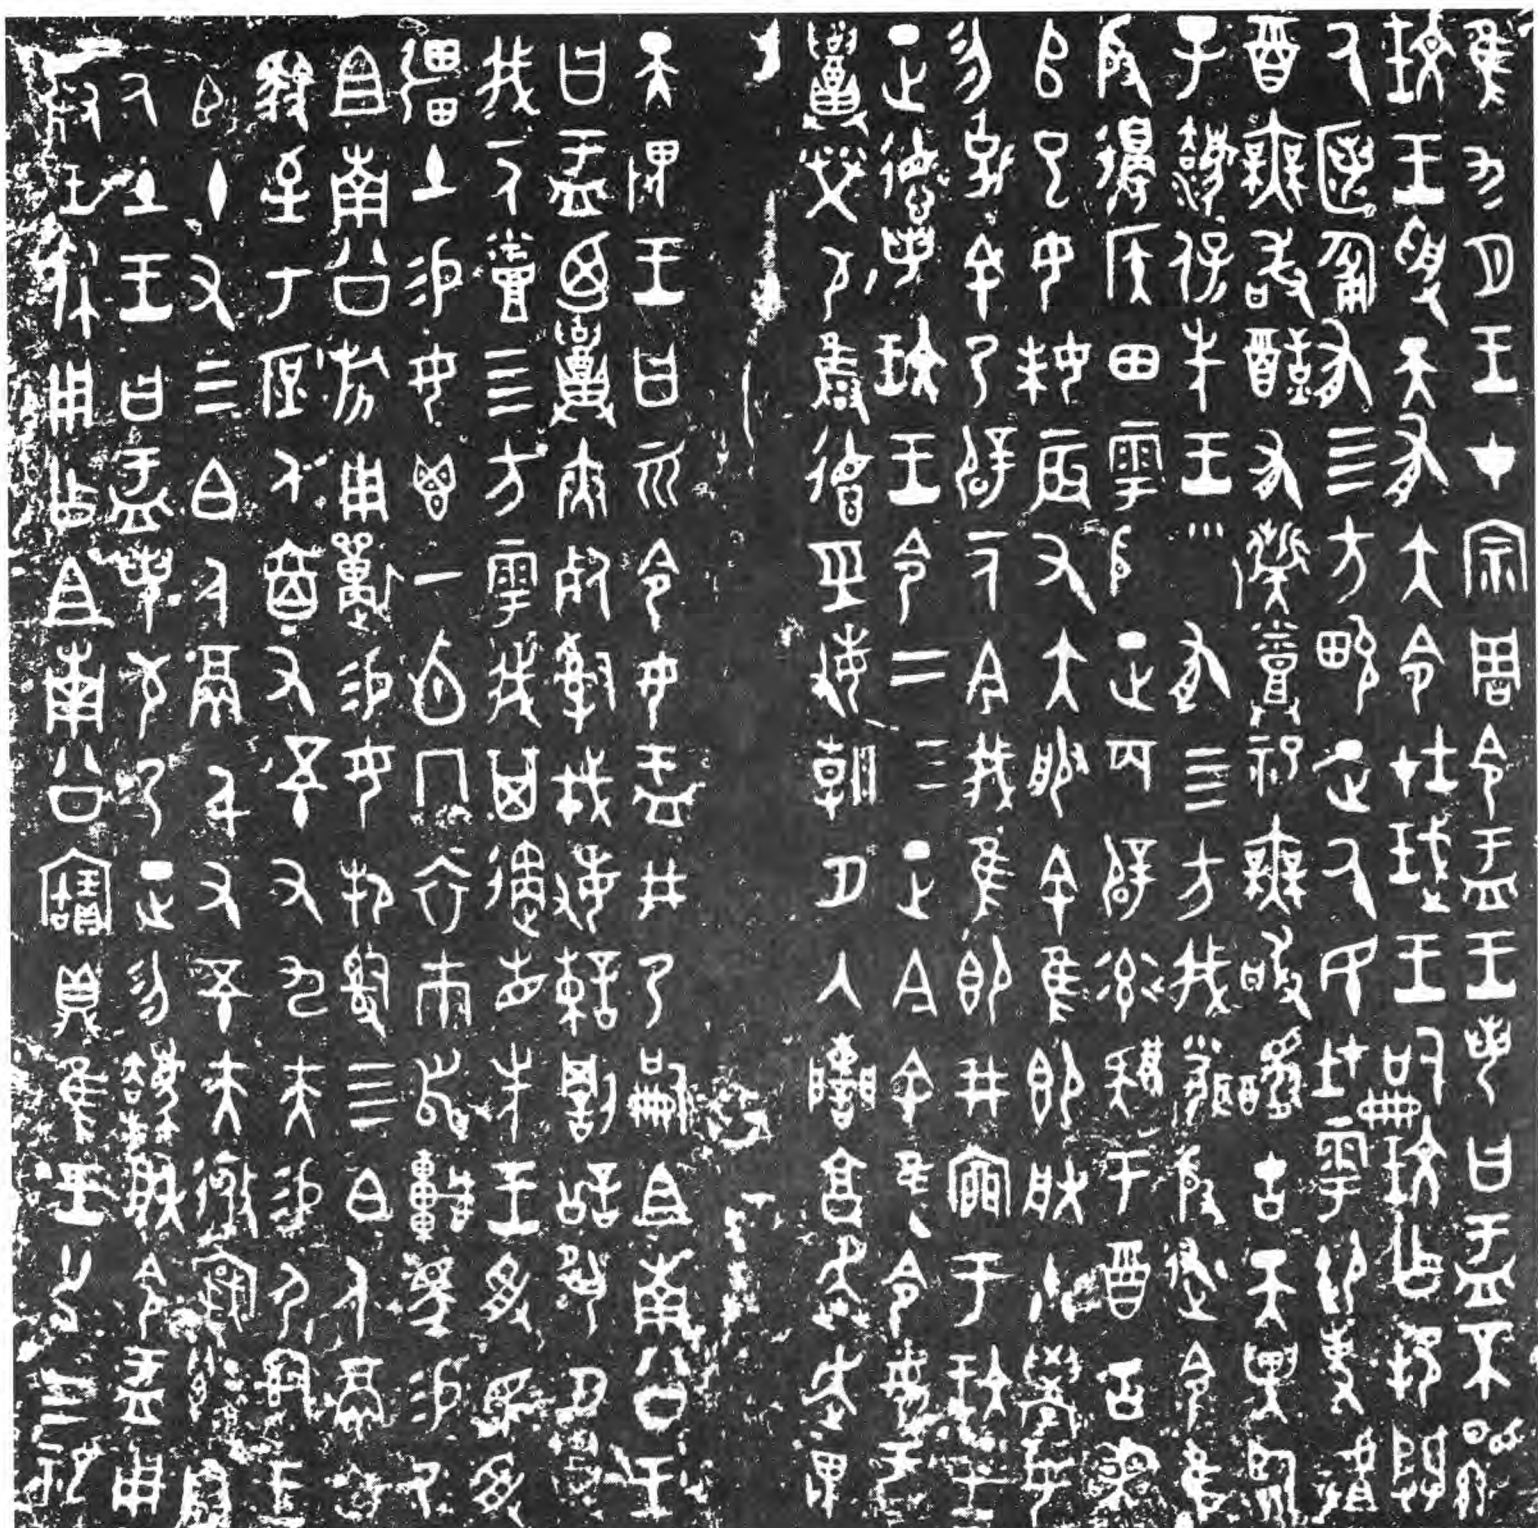 隹九月王才宗周令盂王若曰盂不顯
玟王受天有大令在珷王嗣玟乍邦闢
氒匿匍有四方畯正氒民在雩御事
酉無敢酖有祡烝祀無敢古天異臨
子法保先王有四方我聞殷述令隹
殷邊侯田雩殷正百辟率肄于酉古喪
師巳女妹辰又大服余隹即朕小學女
勿余乃辟一人今我隹即井于玟王
正德若玟王令二三正今余隹令女盂
召榮敬雍德巠敏朝夕入讕享奔走畏
天畏王曰而令女盂井乃嗣且南公王
曰盂廼召夾死司戎敏諫罰訟夙夕召
我一人烝四方雩我其遹省先王受民受
疆土易女鬯一卣冂衣巿舄車馬易乃
且南公旂用狩易女邦司四白人鬲自
馭至于庶人六百又五十又九夫易尸司
王臣十又三白人鬲千又五十夫遷
自氒土王曰盂若敬乃正勿灋朕令盂用
對王休用乍且南公寶鼎隹王廿又三祀